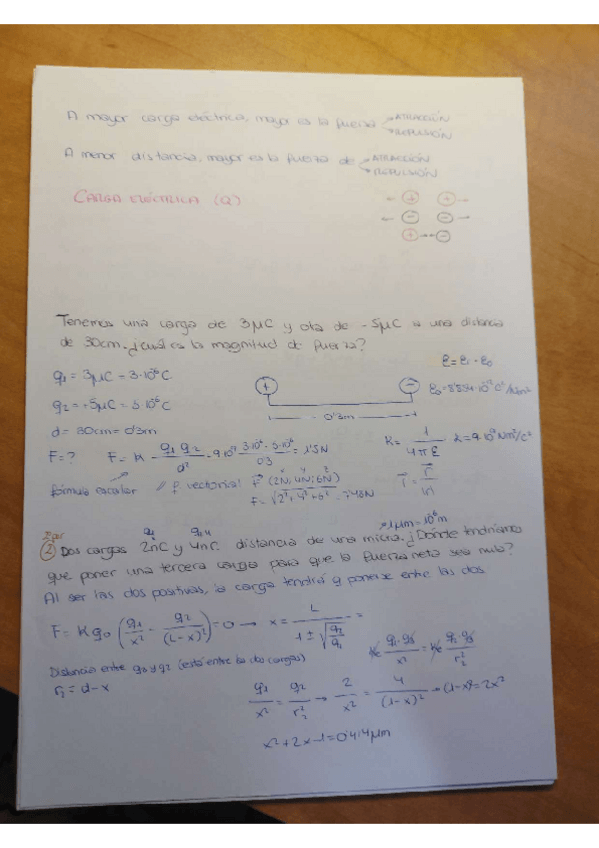 A mayor carga eléctrica, mayor es la fuerza → ATRACCIÓN
→ REPULSIÓN
A menor distancia, mayor es la fuerza de → ATRACCIÓN
→ REPULSIÓN
CARGA ELÉCTRICA (Q)
← + + →
← - - →
+ → ← -
Tenemos una carga de 3μC y otra de -5μC a una distancia
de 30cm. ¿cuál es la magnitud de fuerza?
q1 = 3μC = 3·10⁻⁶C
q2 = -5μC = 5·10⁻⁶C
d = 30cm = 0'3m
+ -
0'3m
F = ?
F = K q1 q2 / d² = 9·10⁹ 3·10⁻⁶ · 5·10⁻⁶ / 0'3 = 1'5N
K = 1 / 4πε
K = 9·10⁹ Nm²/C²
fórmula escalar
F vectorial F (2N, 4N, 6N)
F = √2² + 4² + 6² = 7'48N
② Dos cargas 2nC y 4nC. distancia de una micra. ¿Dónde tendríamos
→ 1μm = 10⁻⁶m
que poner una tercera carga para que la fuerza neta sea nula?
Al ser las dos positivas, la carga tendrá q ponerse entre las dos
F = K q0 (q1 / x² - q2 / (L-x)²) = 0 → x = L / 1 ± √q2/q1 =
Distancia entre q0 y q2 (está entre las dos cargas)
r2 = d - x
q1 / x² = q2 / r2² → 2 / x² = 4 / (1-x)² → (1-x)² = 2x²
x² + 2x - 1 = 0'414μm